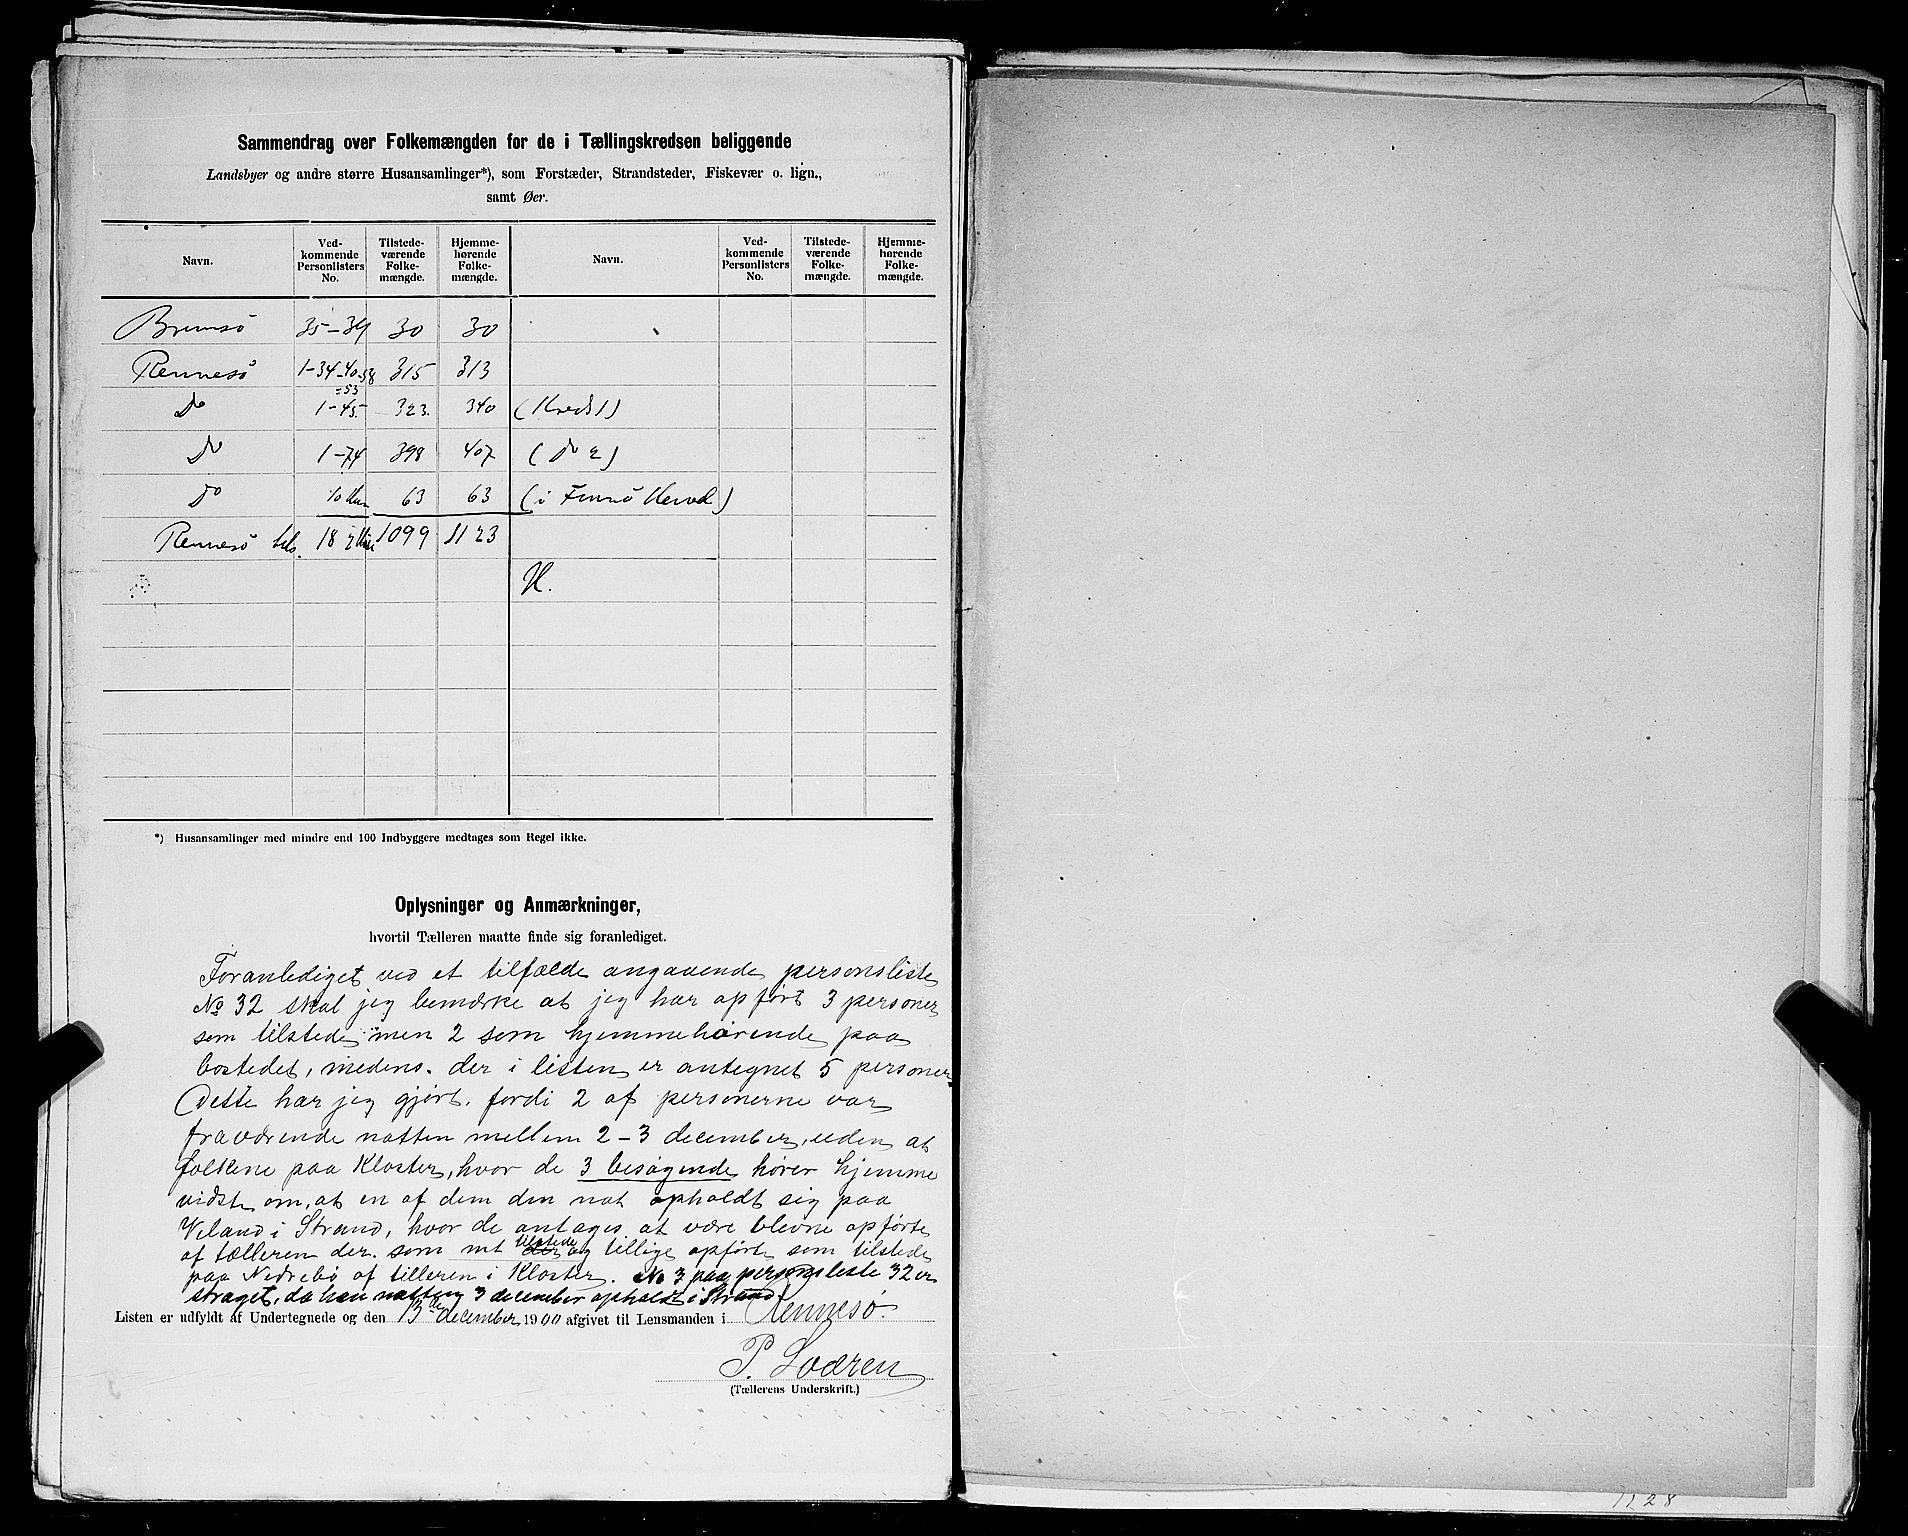 Sammendrag over Folkemængden for de i Tællingskredsen beliggende
Landsbyer og andre større Husansamlinger*), som Forstæder, Strandsteder, Fiskevær o. lign.,
samt Øer.
Navn. Ved-kommende Personlisters No. Tilstede-værende Folke-mængde. Hjemme-hørende Folke-mængde. Navn. Ved-kommende Personlisters No. Tilstede-værende Folke-mængde. Hjemme-hørende Folke-mængde.
Brimsö 35-39 30 30
Rennesö 1-34-40-58 315 313
=53
Do 1-45 323 340 (Kreds 1)
Do 1-74 398 407 (Do 2)
Do 10 Hus 63 63 (i Finnö Herred)
Rennesö tils. 182 Huse 1099 1123
H.
*) Husansamlinger med mindre end 100 Indbyggere medtages som Regel ikke.
Oplysninger og Anmærkninger,
hvortil Tælleren maatte finde sig foranlediget.
Foranlediget ved et tilfælde angaaende personsliste
No 32 skal jeg bemærke at jeg har opført 3 personer
som tilstede men 2 som hjemmehørende paa
bostedet, medens der i listen er antegnet 5 personer
Dette har jeg gjort, fordi 2 af personerne var
fraværende natten mellem 2-3 december, uden at
folkene paa Kloster, hvor de 3 besøgende hører hjemme
vidste om, at en af dem den nat opholdt sig paa
Veland i Strand, hvor de antages at være blevne opførte
af tælleren der som mt tilstede og tillige opførte som tilstede
paa Nedrebö af tælleren i Kloster. No 3 paa personsliste 32 er
straget, da han natten 3 december opholdt i Strand.
Listen er udfyldt af Undertegnede og den 13de december 1900 afgivet til Lensmanden i Rennesö.
P. Sodren
(Tællerens Underskrift.)
1128